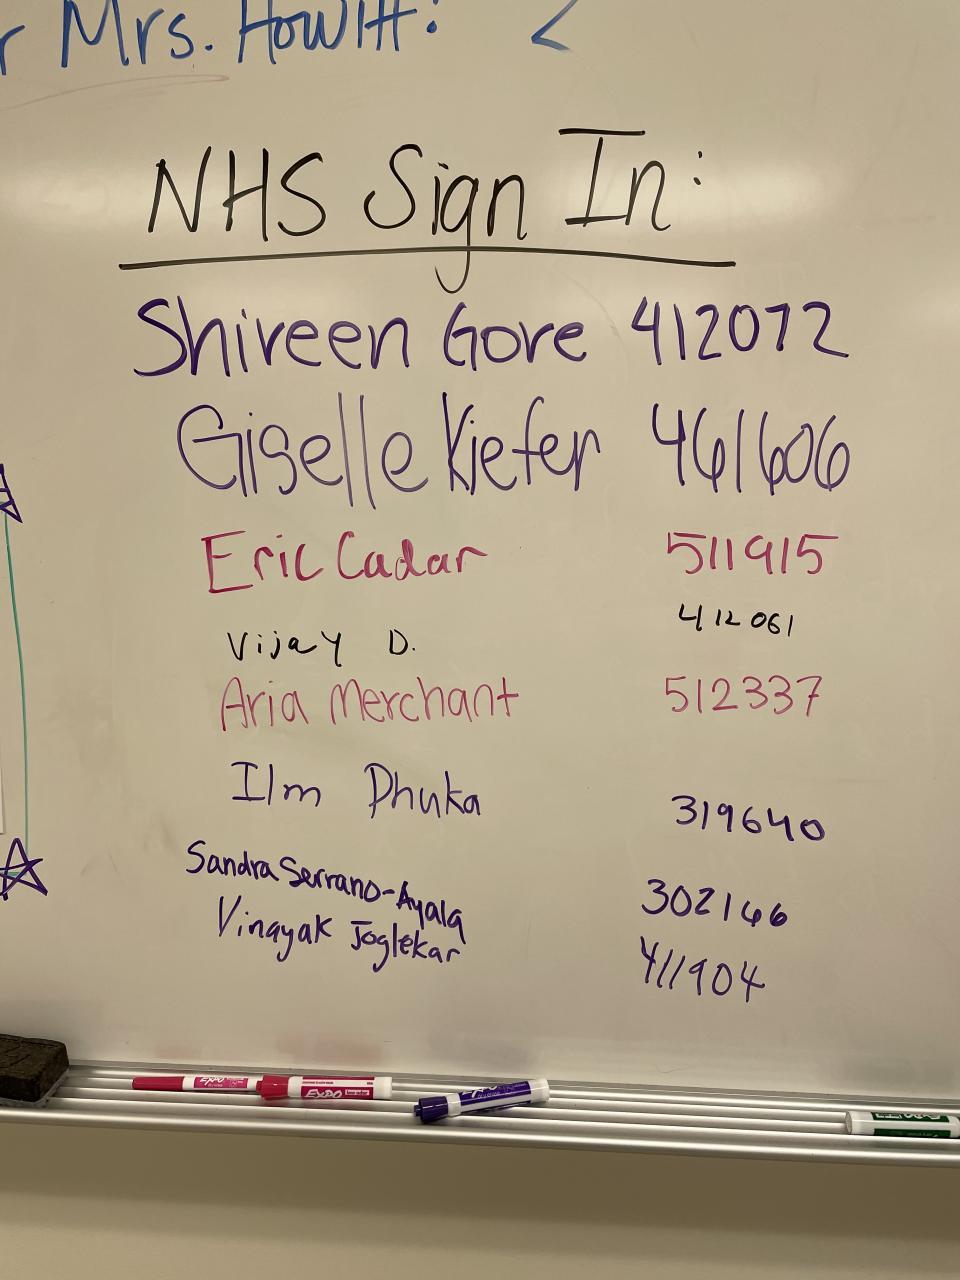 r Mrs. Howitt: <
NHS Sign In:
Shireen Gore 412072
Giselle Kiefer 461606
Eric Cadar 511915
Vijay D. 412061
Aria Merchant 512337
Ilm Dhuka 319640
Sandra Serrano-Ayala 302166
Vinayak Joglekar 411904
EXPO
EXPO